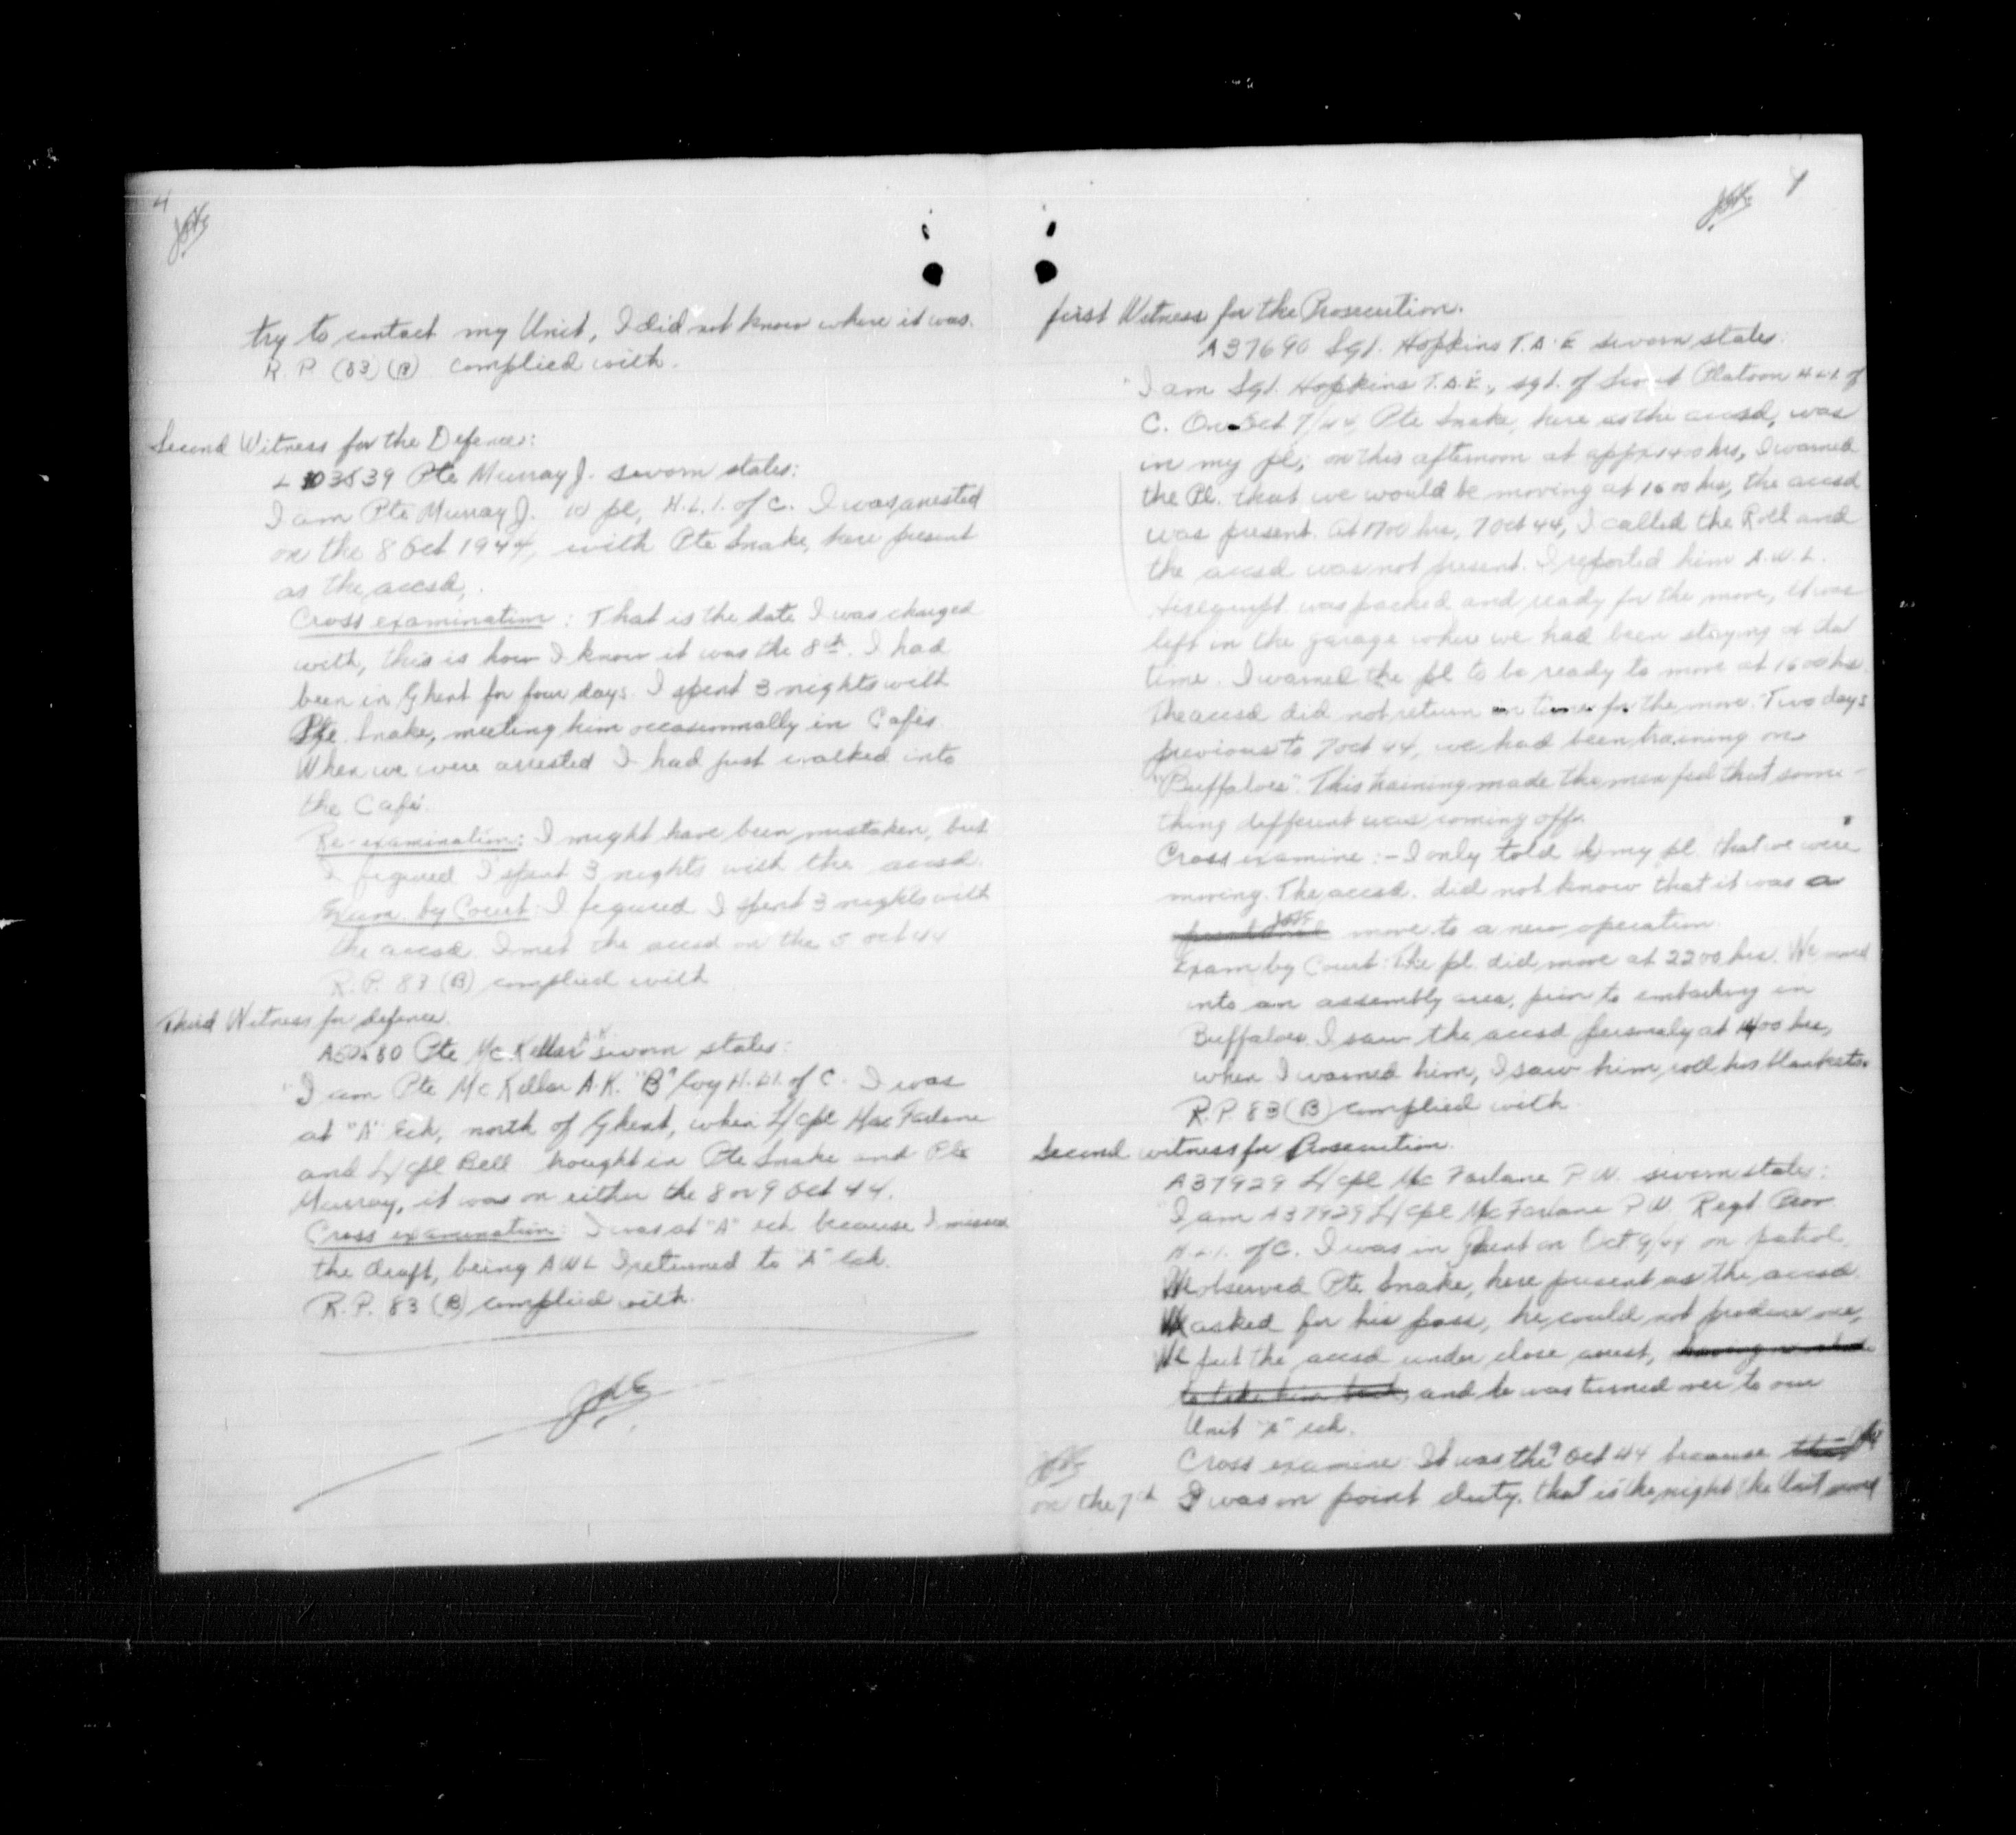 4
try to contact my Unit, I did not know where it was.
R.P. (83) (B) complied with.
Second Witness for the Defence:
L 103539 Pte Murray J. sworn states:
I am Pte Murray J. 10 pl, H.L.I. of C. I was arrested
on the 8 Oct 1944, with Pte Snake, here present
as the accsd.
Cross examination: That is the date I was charged
with, this is how I know it was the 8th. I had
been in Ghent for four days. I spent 3 nights with
Pte. Snake, meeting him occasionnally in Cafés.
When we were arrested I had just walked into
the Café.
Re-examination: I might have been mistaken, but
I figured I spent 3 nights with the accsd.
Exam. by Court: I figured I spent 3 nights with
the accsd. I met the accsd on the 5 Oct 44
R.P. 83 (B) complied with
Third Witness for defence.
Pte McKellar A.K. sworn states:
"I am Pte McKellar A.K. "B" Coy H.L.I. of C. I was
at "A" Ech, north of Ghent, when L/Cpl MacFarlane
and L/Cpl Bell brought in Pte Snake and Pte
Murray, it was on either the 8 or 9 Oct 44.
Cross examination: I was at "A" ech because I missed
the draft, being AWL I returned to "A" Ech.
R.P. 83 (B) complied with.
1
first Witness for the Prosecution.
A37690 Sgt. Hopkins T.A.E sworn states:
"I am Sgt. Hopkins T.A.E., sgt. of Scout Platoon H.L.I. of
C. On Oct 7/44, Pte Snake, here as the accsd, was
in my pl; on this afternoon at appx 1400 hrs, I warned
the Pl. that we would be moving at 1600 hrs, the accsd
was present. At 1700 hrs, 7 Oct 44, I called the Roll and
the accsd was not present. I reported him A.W.L.
His equipt was packed and ready for the move, it was
left in the garage where we had been staying at that
time. I warned the pl to be ready to move at 1600 hrs
The accsd did not return in time for the move. Two days
previous to 7 Oct 44, we had been training on
"Buffaloes". This training made the men feel that some-
thing different was coming off.
Cross examine:- I only told my pl. that we were
moving. The accsd. did not know that it was a
move to a new operation
Exam by Court: The pl. did move at 2200 hrs. We moved
into an assembly area, prior to embarking in
Buffaloes. I saw the accsd personaly at 1400 hrs,
when I warned him, I saw him roll his blankets.
R.P. 83 (B) complied with
Second witness for Prosecution.
A37929 L/Cpl McFarlane P.W. sworn states:
"I am A37929 L/Cpl McFarlane P.W. Regt Prov
H.L.I. of C. I was in Ghent on Oct 9/44 on patrol.
We observed Pte. Snake, here present as the accsd.
We asked for his pass, he could not produce one,
We put the accsd under close arrest,
and he was turned over to our
Unit "A" ech.
Cross examine: It was the 9 Oct 44 because
on the 7th I was on point duty, that is the night the Unit moved